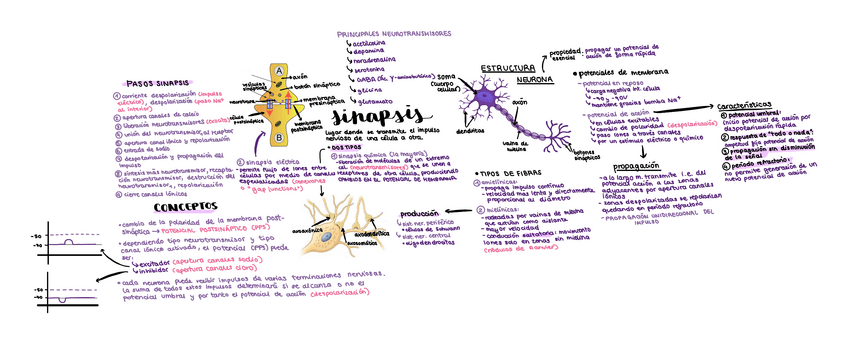 PRINCIPALES NEUROTRANSMISORES
acetilcolina
dopamina
noradrenalina
serotonina
GABA (Ác. γ-aminobutírico)
glicina
glutamato
sinapsis
lugar donde se transmite el impulso
nervioso de una célula a otra.
PASOS SINAPSIS
① corriente despolarización (impulso
eléctrico), despolarización (paso Na⁺
al interior)
② apertura canales de calcio
③ liberación neurotransmisores
④ unión del neurotransmisor al receptor
⑤ apertura canal iónico y repolarización
⑥ entrada de sodio
⑦ despolarización y propagación del
impulso
⑧ síntesis más neurotransmisor, recapta-
ción neurotransmisor, destrucción del
neurotransmisor, repolarización
⑨ cierre canales iónicos
A
B
axón
vesículas
sinápticas
botón sináptico
membrana
presináptica
membrana
postsináptica
célula
postsináptica
DOS TIPOS
② sinapsis eléctrica
permite flujo de iones entre
células por medio de canales
especializados (conexiones
o "gap junctions")
① sinapsis química (la mayoría)
liberación de moléculas de un extremo
cel. (neurotransmisores) que se unen a
receptores de otra célula, produciendo
cambios en el POTENCIAL DE MEMBRANA
axoaxónica
axodendrítica
axosomática
CONCEPTOS
cambio de la polaridad de la membrana post-
sináptica → POTENCIAL POSTSINÁPTICO (PPS)
dependiendo tipo neurotransmisor y tipo
canal iónico activado, el potencial (PPS) puede
ser:
excitador (apertura canales sodio)
inhibidor (apertura canales cloro)
cada neurona puede recibir impulsos de varias terminaciones nerviosas.
la suma de todos estos impulsos determinará si se alcanza o no el
potencial umbral y por tanto el potencial de acción (despolarización)
-50
-70
-50
-70
ESTRUCTURA
NEURONA
soma
(cuerpo
celular)
dendritas
axón
vaina de
mielina
botones
sinápticos
propiedad
esencial: propagar un potencial de
acción de forma rápida
potenciales de membrana
potencial en reposo
carga negativa int. célula
mantiene gracias bomba Na⁺
potencial de acción
en células excitables
cambio de polaridad (despolarización)
paso iones a través canales
por un estímulo eléctrico o químico
Características
① potencial umbral:
inicia potencial de acción por
despolarización rápida
② respuesta de "todo o nada":
amplitud fija potencial de acción
③ propagación sin disminución
de la señal
④ periodo refractario:
no permite generación de un
nuevo potencial de acción
propagación
a lo largo m. transmite i.e. del
potencial acción a las zonas
adyacentes por apertura canales
iónicos
zonas despolarizadas se repolarizan
quedando en período refractario
PROPAGACIÓN UNIDIRECCIONAL DEL
IMPULSO
TIPOS DE FIBRAS
① amielínicas:
propaga impulso continuo
velocidad mas lenta y directamente
proporcional al diámetro
② mielínicas:
rodeadas por vainas de mielina
que actúan como aislante
mayor velocidad
conducción saltatoria: movimiento
iones solo en zonas sin mielina
(nódulos de Ranvier)
producción
sist. ner. periférico
células de schwann
sist. ner. central
oligodendrocitos